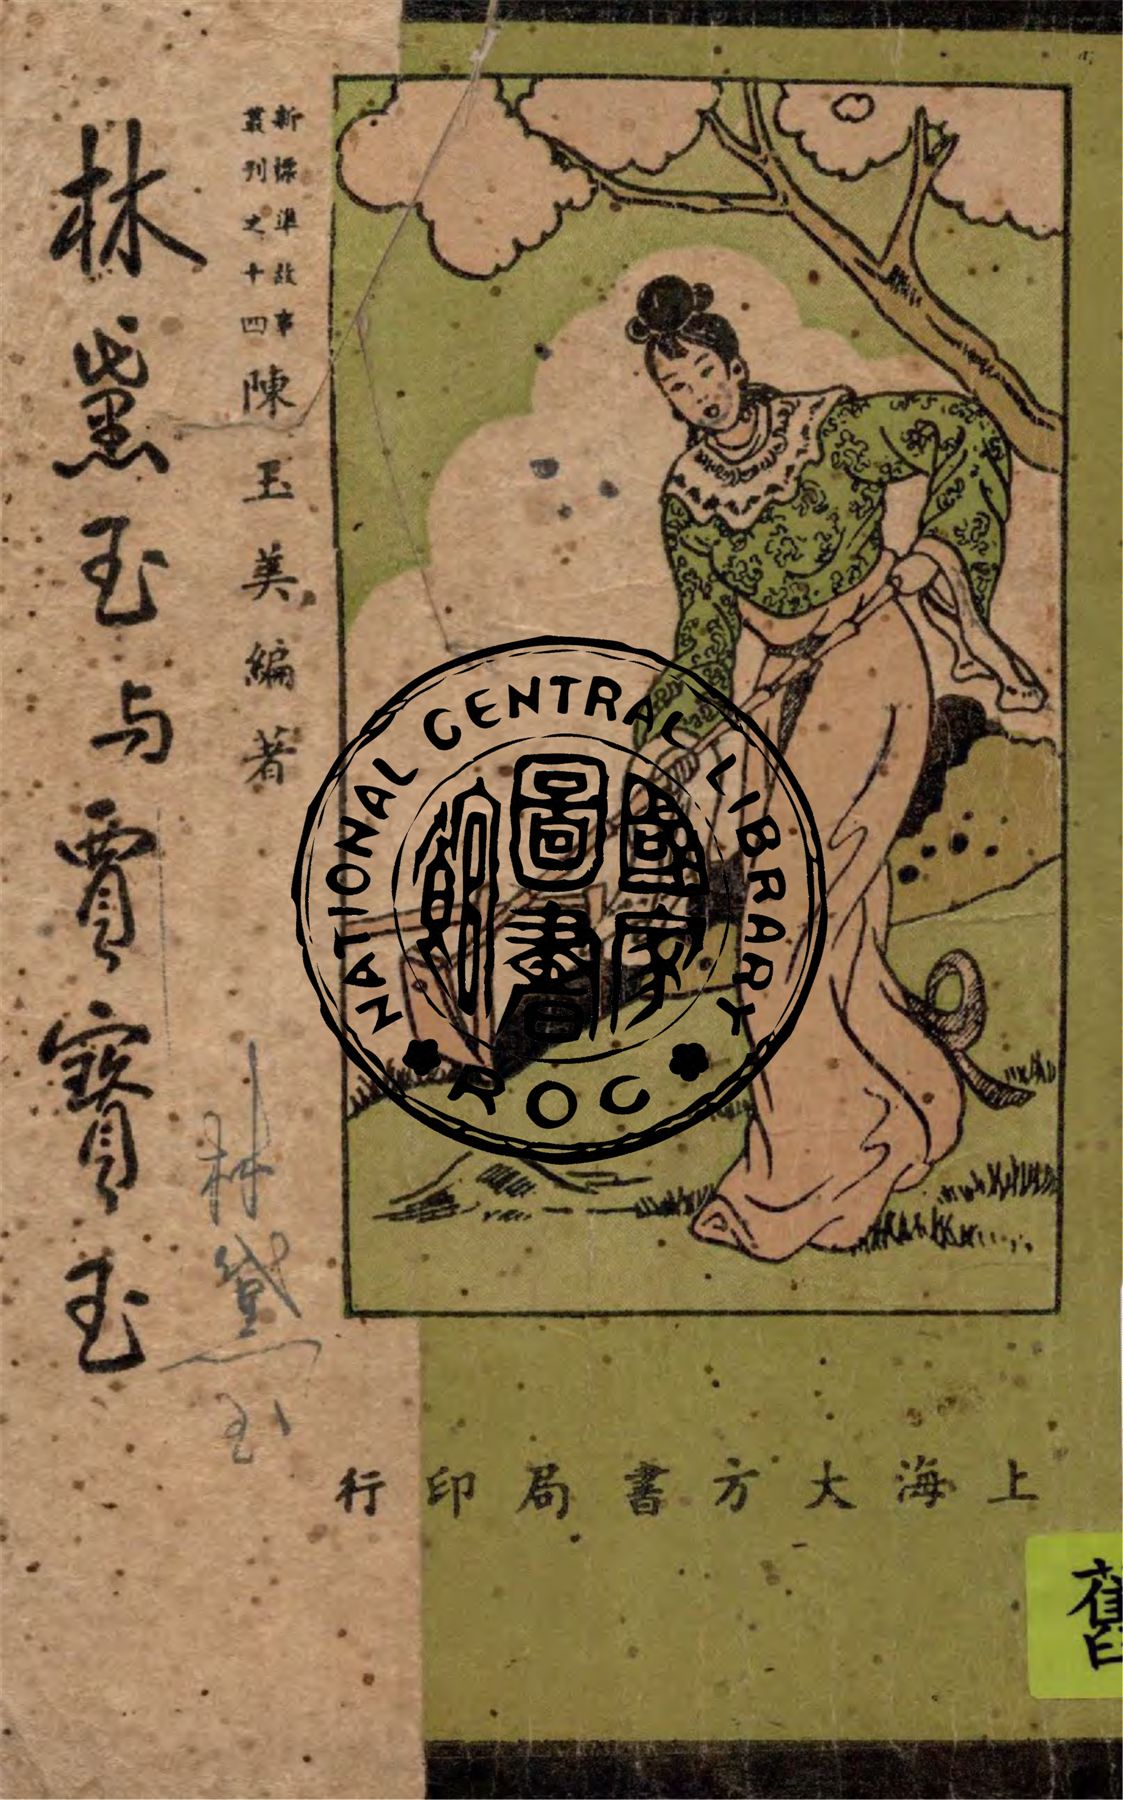 新標準故事
叢刊之十四
陳玉英編著
林黛玉与賈寶玉
林黛玉
NATIONAL CENTRAL LIBRARY
國家圖書館
ROC
上海大方書局印行
舊